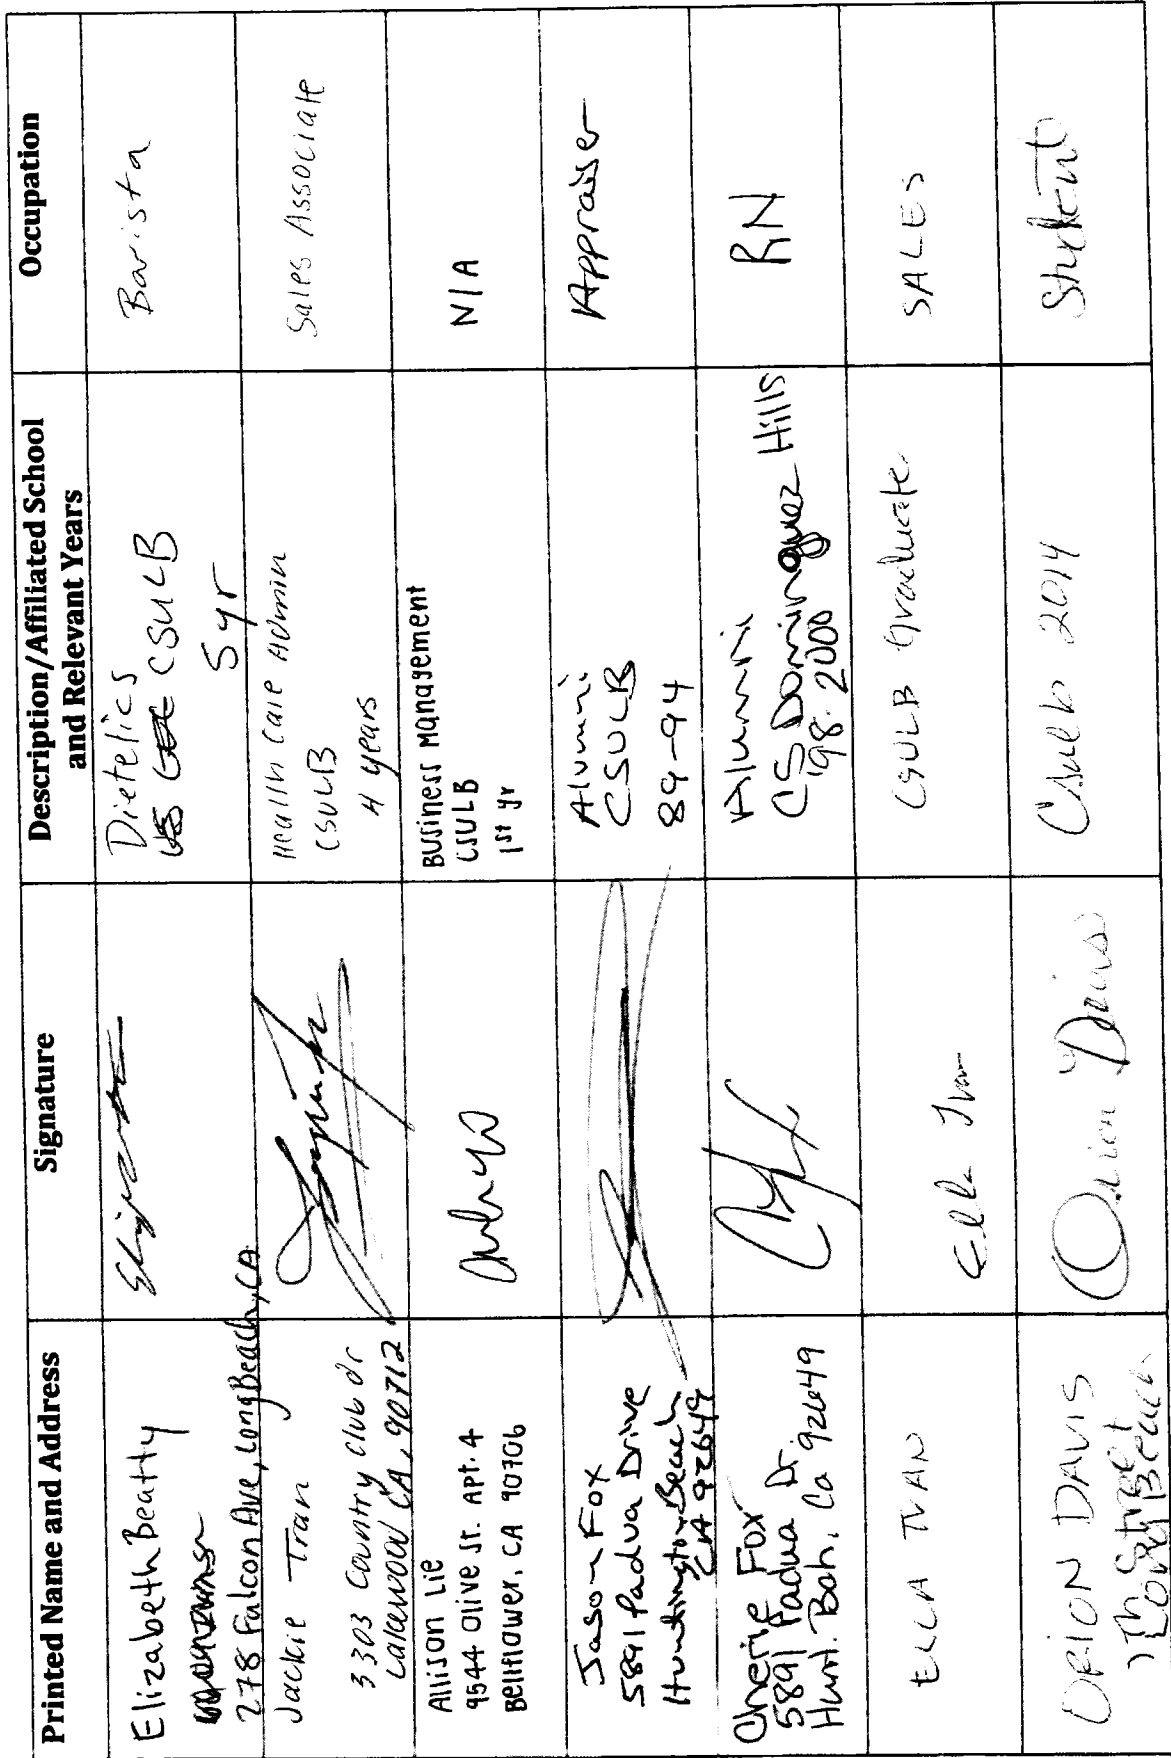 Printed Name and Address
Signature
Description/Affiliated School
and Relevant Years
Occupation
Elizabeth Beatty
278 Falcon Ave, Long Beach, CA
Dietetics
CSULB
5 yr
Barista
Jackie Tran
3303 Country Club dr
Lakewood CA, 90712
Health Care Admin
CSULB
4 years
Sales Associate
Allison Lie
9544 Olive St. Apt. 4
Bellflower, CA 90706
Business Management
CSULB
1st yr
N/A
Jason Fox
5891 Padua Drive
Huntington Beach
CA 92649
Alumni
CSULB
89-94
Appraiser
Cherie Fox
5891 Padua Dr.
Hunt. Bch, Ca 92649
Alumni
CS Dominguez Hills
'98-2000
RN
ELLA TRAN
Ella Tran
CSULB Graduate
SALES
ORION DAVIS
7th Street
Long Beach
Orion Davis
Csulb 2014
Student